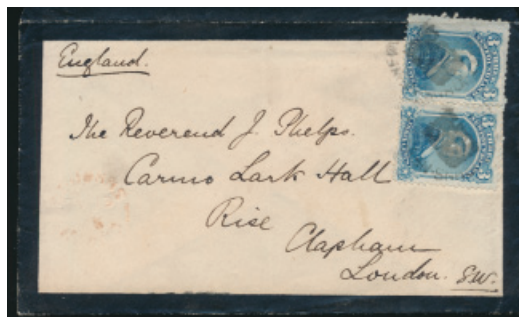 England.
The Reverend J. Phelps.
Carmo Lark Hall
Rise
Clapham
London. S.W.
3 3
3 3